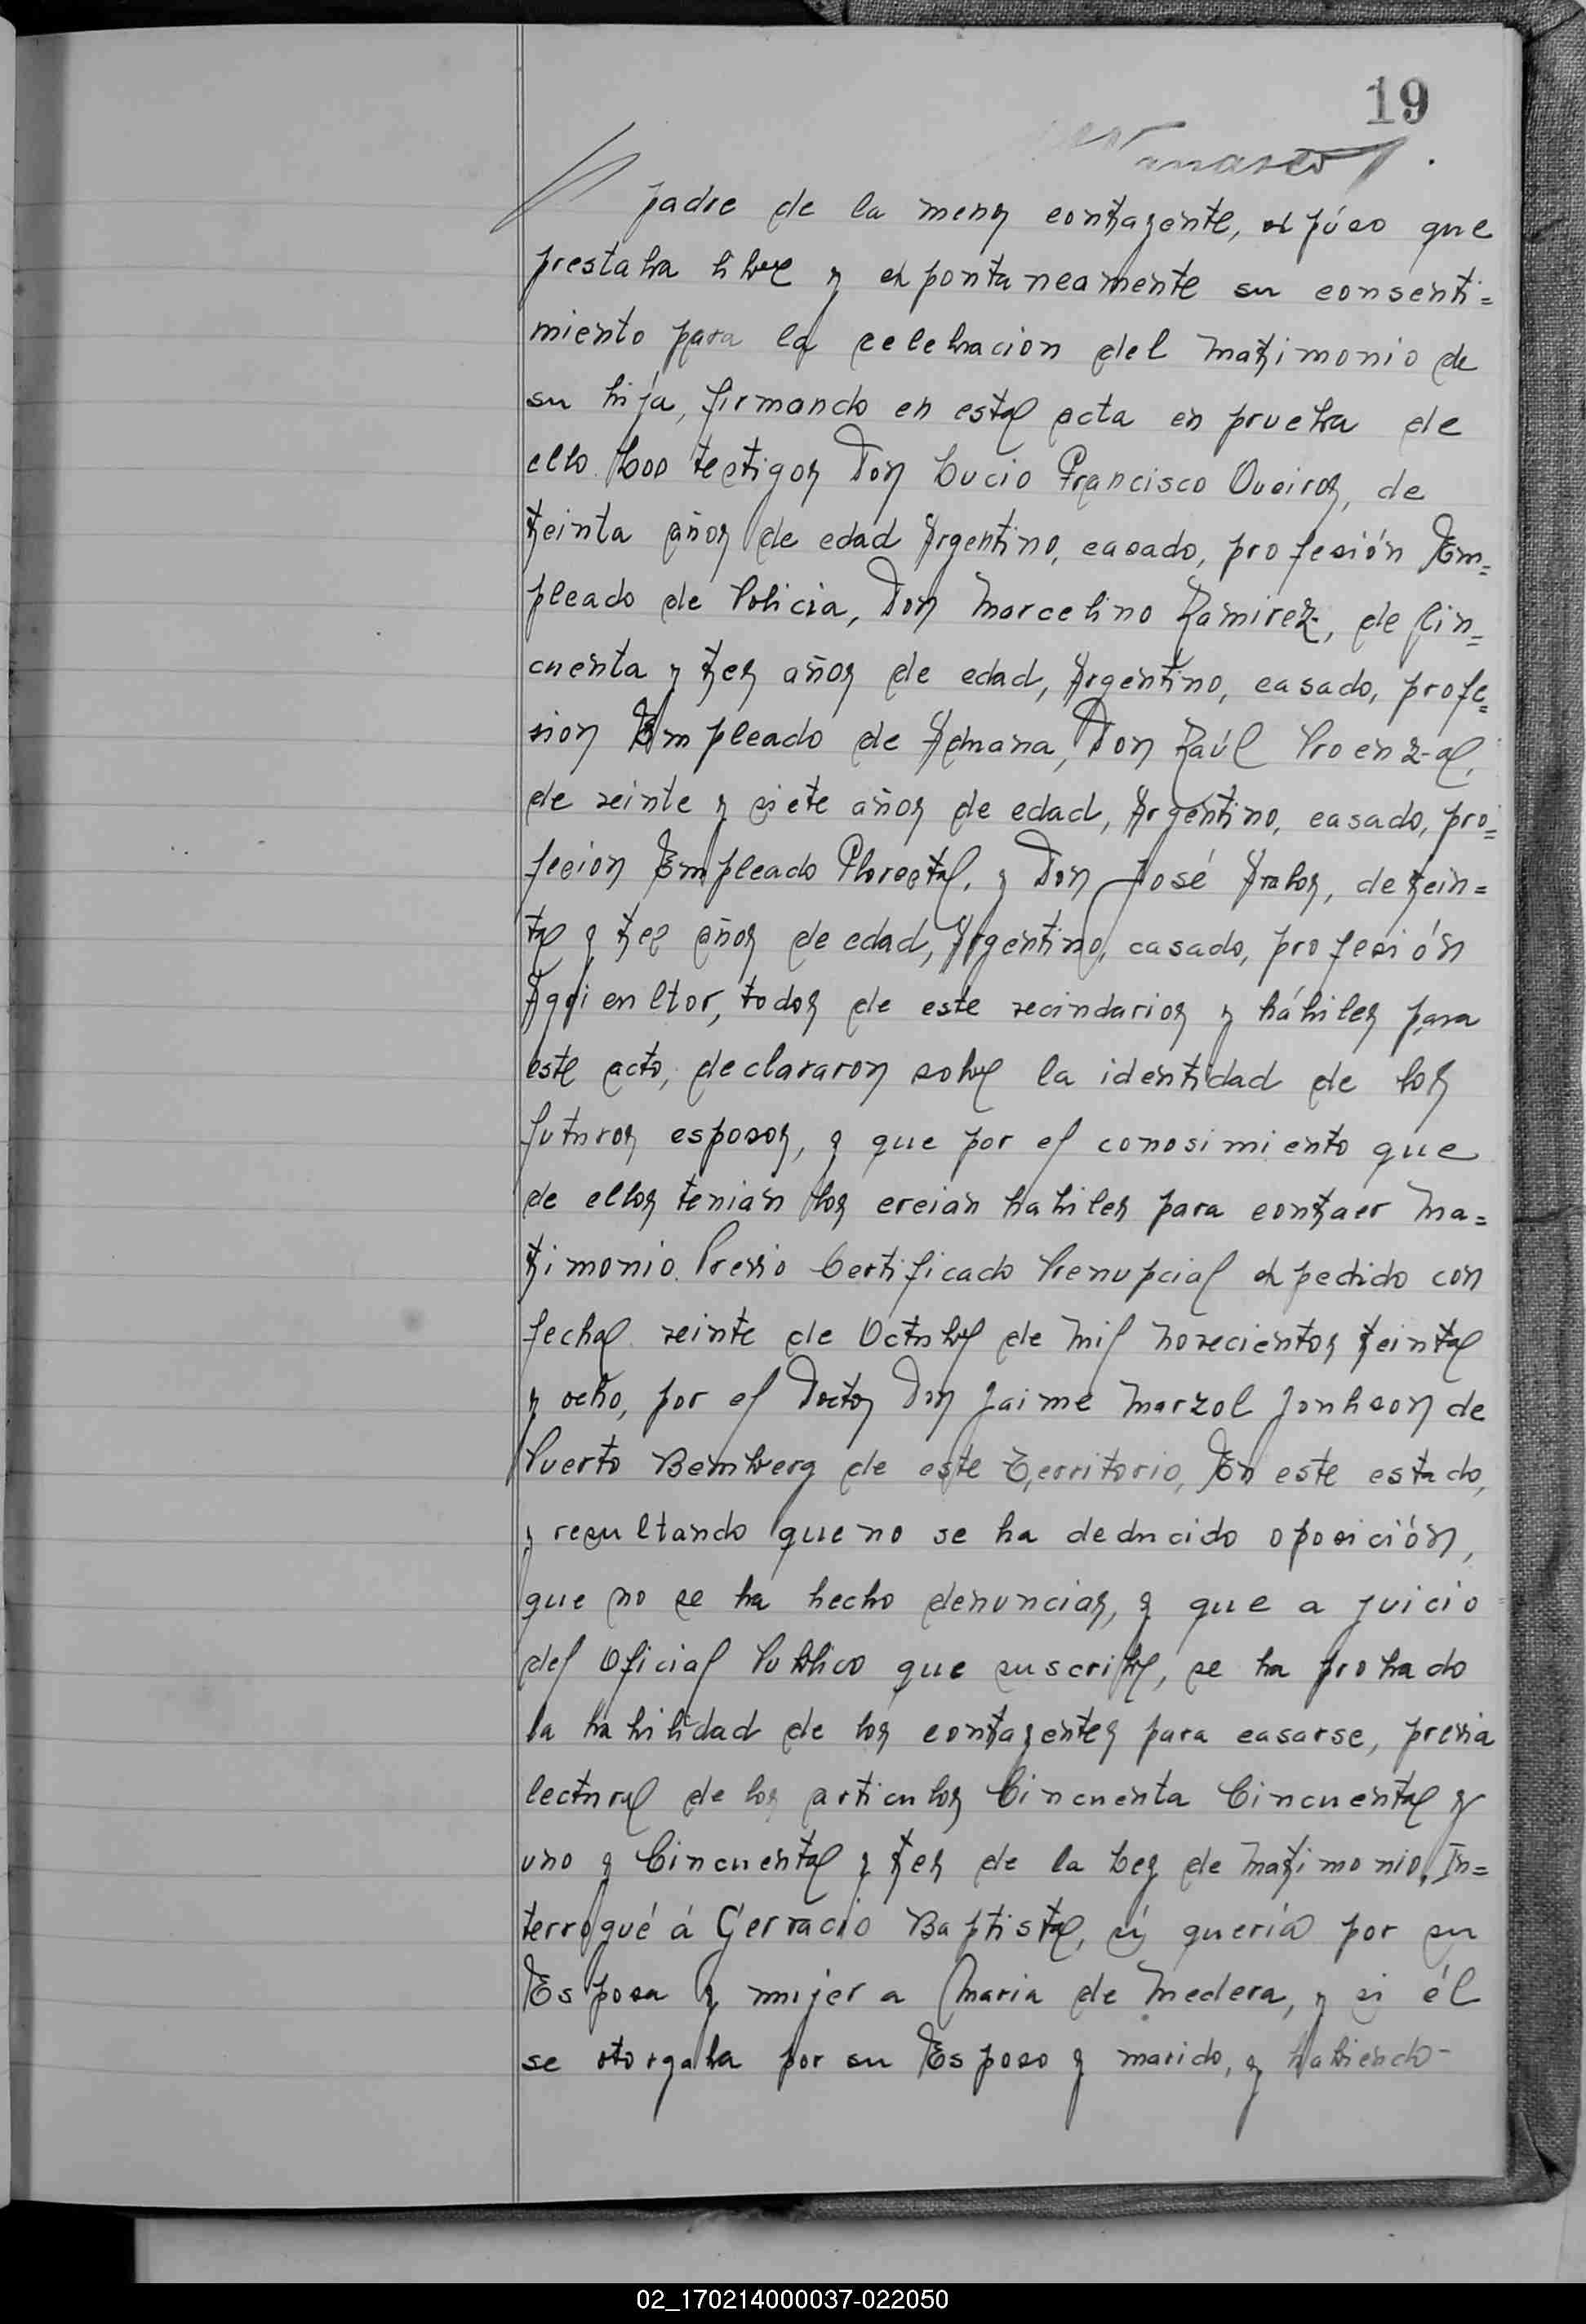 19
padre de la menor contrayente, expúso que
prestaba libre y expontaneamente su consenti=
miento para la celebracion del matrimonio de
su hija, firmando en esta acta en prueba de
ello. Los testigos Don Lucio Francisco Queiros, de
treinta años de edad Argentino, casado, profesión Em=
pleado de Policia, Don Marcelino Ramirez, de Cin=
cuenta y tres años de edad, Argentino, casado, profe=
sion Empleado de Aduana, Don Raúl Proenza,
de veinte y siete años de edad, Argentino, casado, pro=
fesion Empleado Florestal, y Don José, de trein=
ta y tres años de edad, Argentino, casado, profesión
Agricultor, todos de este vecindarios y hábiles para
este acto, declararon sobre la identidad de los
futuros esposos, y que por el conosimiento que
de ellos tenian los creian habiles para contraer Ma=
trimonio. Previo Certificado Prenupcial expedido con
fecha veinte de Octubre de mil novecientos treinta
y ocho, por el Doctor Don Jaime Marzol Jonhson de
Puerto Bemberg de este Territorio, En este estado,
y resultando que no se ha deducido oposición,
que no se ha hecho denuncias, y que a juicio
del Oficial Publico que suscribe, se ha probado
la habilidad de los contrayentes para casarse, previa
lectura de los articulos Cincuenta Cincuenta y
uno y Cincuenta y tres de la Ley de Matrimonio, In=
terrogué á Gervacio Baptista, si quería por su
Esposa y mujer a Maria de Medera, y si él
se otorgaba por su Esposo y marido, y habiendo-
02_170214000037-022050